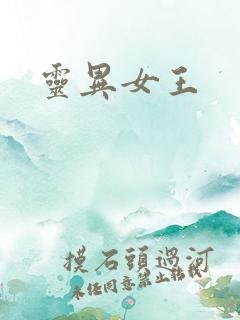 靈異女王
摸石頭過河
未經同意禁止轉載